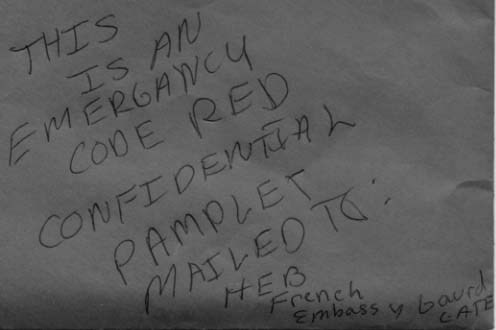 THIS
IS AN
EMERGANCY
CODE RED
CONFIDENTIAL
PAMPLET
MAILED TO:
HEB
French
Embassy Gaurd
GATE